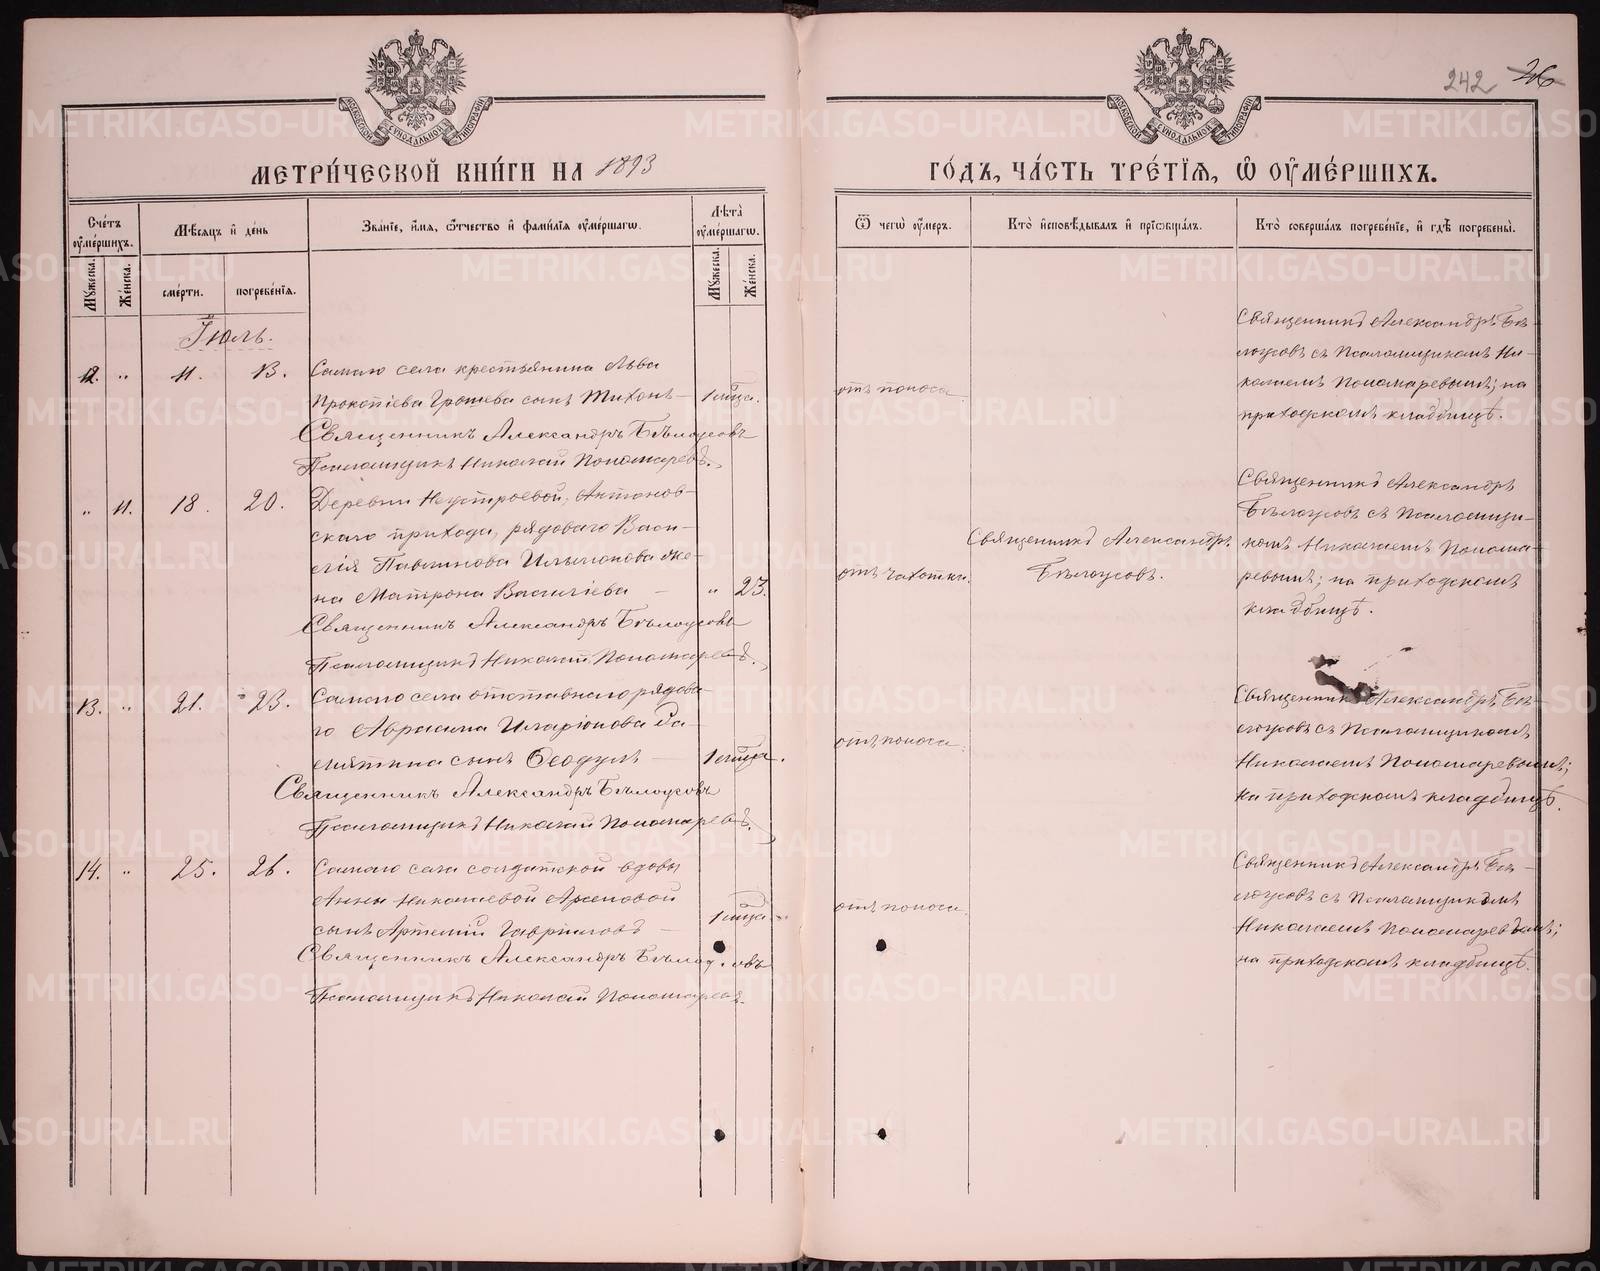 242 26
МЕТРИ́ЧЕСКОЙ КНИ́ГИ НА 1893
ГО́ДЪ, ЧА́СТЬ ТРЕ́ТІЯ, Ѡ ОУМЕ́РШИХЪ.
Сче́тъ оуме́ршихъ.
Му́жеска.
Же́нска.
Мѣ́сяцъ и де́нь
сме́рти.
погребе́нія.
Зва́ніе, и́мя, ѻ́тчество и фами́лія оуме́ршагѡ.
Лѣ́та оуме́ршагѡ.
Му́жеска.
Же́нска.
Ѿ чегѡ̀ оу́меръ.
Кто̀ исповѣ́дывалъ и пріѡбща́лъ.
Кто̀ соверша́лъ погребе́ніе, и гдѣ̀ погребены̀.
Іюль.
12. „ 11. 13. Самаго села крестьянина Льва
Прокопіева Грошева сынъ Тихонъ — 1 мѣца.
Священникъ Александръ Бѣлоусовъ
Псаломщикъ Николай Пономаревъ.
отъ поноса.
Священникъ Александръ Бѣ-
лоусовъ съ Псаломщикомъ Ни-
колаемъ Пономаревымъ; на
приходскомъ кладбищѣ.
„ 11. 18. 20. Деревни Неустроевой, Антонов-
скаго прихода, рядоваго Васи-
лія Павлинова жe-
на Матрона Василіева — „ 23.
Священникъ Александръ Бѣлоусовъ
Псаломщикъ Николай Пономаревъ.
отъ чахотки.
Священникъ Александръ
Бѣлоусовъ.
Священникъ Александръ
Бѣлоусовъ съ Псаломщи-
комъ Николаемъ Понома-
ревымъ; на приходскомъ
кладбищѣ.
13. „ 21. 23. Самаго села отставнаго рядова-
го Авраама Иларіонова Са-
мятина сынъ Ѳеодулъ — 1 мѣца.
Священникъ Александръ Бѣлоусовъ
Псаломщикъ Николай Пономаревъ.
отъ поноса.
Священникъ Александръ Бѣ-
лоусовъ съ Псаломщикомъ
Николаемъ Пономаревымъ;
на приходскомъ кладбищѣ.
14. „ 25. 26. Самаго села солдатской вдовы
Анны Николаевой Арсеновой
сынъ Артемій Гавриловъ — 1 мѣца „
Священникъ Александръ Бѣлоусовъ
Псаломщикъ Николай Пономаревъ.
отъ поноса.
Священникъ Александръ Бѣ-
лоусовъ съ Псаломщикомъ
Николаемъ Пономаревымъ;
на приходскомъ кладбищѣ.
METRIKI.GASO-URAL.RU